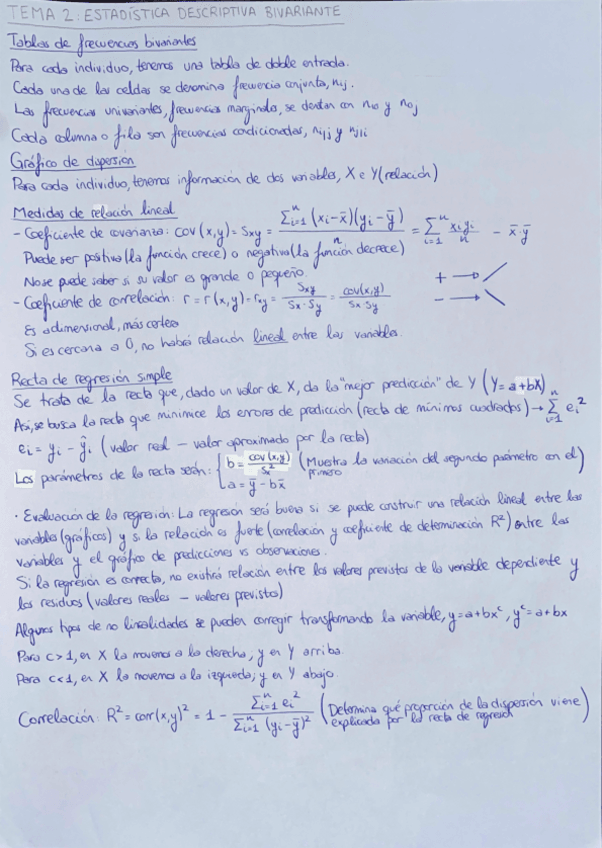 TEMA 2: ESTADÍSTICA DESCRIPTIVA BIVARIANTE
Tablas de frecuencias bivariantes
Para cada individuo, tenemos una tabla de doble entrada.
Cada una de las celdas se denomina frecuencia conjunta, nij.
Las frecuencias univariantes, frecuencias marginales, se denotan con ni0 y n0j
Cada columna o fila son frecuencias condicionadas, ni|j y nj|i
Gráfico de dispersión
Para cada individuo, tenemos información de dos variables, X e Y (relación)
Medidas de relación lineal
- Coeficiente de covarianza: cov (x,y) = Sxy = Σⁿi=1 (xi-x̄)(yi-ȳ) / n = Σⁿi=1 xiyi/n - x̄·ȳ
Puede ser positiva (la función crece) o negativa (la función decrece)
No se puede saber si su valor es grande o pequeño. + → /
- Coeficiente de correlación: r = r (x,y) = rxy = Sxy / Sx·Sy = cov(x,y) / Sx Sy - → \
Es adimensional, más certero
Si es cercano a 0, no habrá relación lineal entre las variables.
Recta de regresión simple
Se trata de la recta que, dado un valor de X, da la "mejor predicción" de Y (Y = a+bX)
Así, se busca la recta que minimice los errores de predicción (recta de mínimos cuadrados) → Σⁿi=1 ei²
ei = yi - ŷi (valor real - valor aproximado por la recta)
Los parámetros de la recta serán: { b = cov(x,y) / Sx² (Muestra la variación del segundo parámetro con el primero)
a = ȳ - bx̄
· Evaluación de la regresión: La regresión será buena si se puede construir una relación lineal entre las
variables (gráficos) y si la relación es fuerte (correlación y coeficiente de determinación R²) entre las
variables y el gráfico de predicciones vs observaciones.
Si la regresión es correcta, no existirá relación entre los valores previstos de la variable dependiente y
los residuos (valores reales - valores previstos)
Algunos tipos de no linealidades se pueden corregir transformando la variable, y=a+bxᶜ, yᶜ=a+bx
Para c>1, en X la movemos a la derecha, y en Y arriba.
Para c<1, en X la movemos a la izquierda, y en Y abajo.
Correlación: R² = corr(x,y)² = 1 - Σⁿi=1 ei² / Σⁿi=1 (yi-ȳ)² (Determina qué proporción de la dispersión viene
explicada por la recta de regresión)